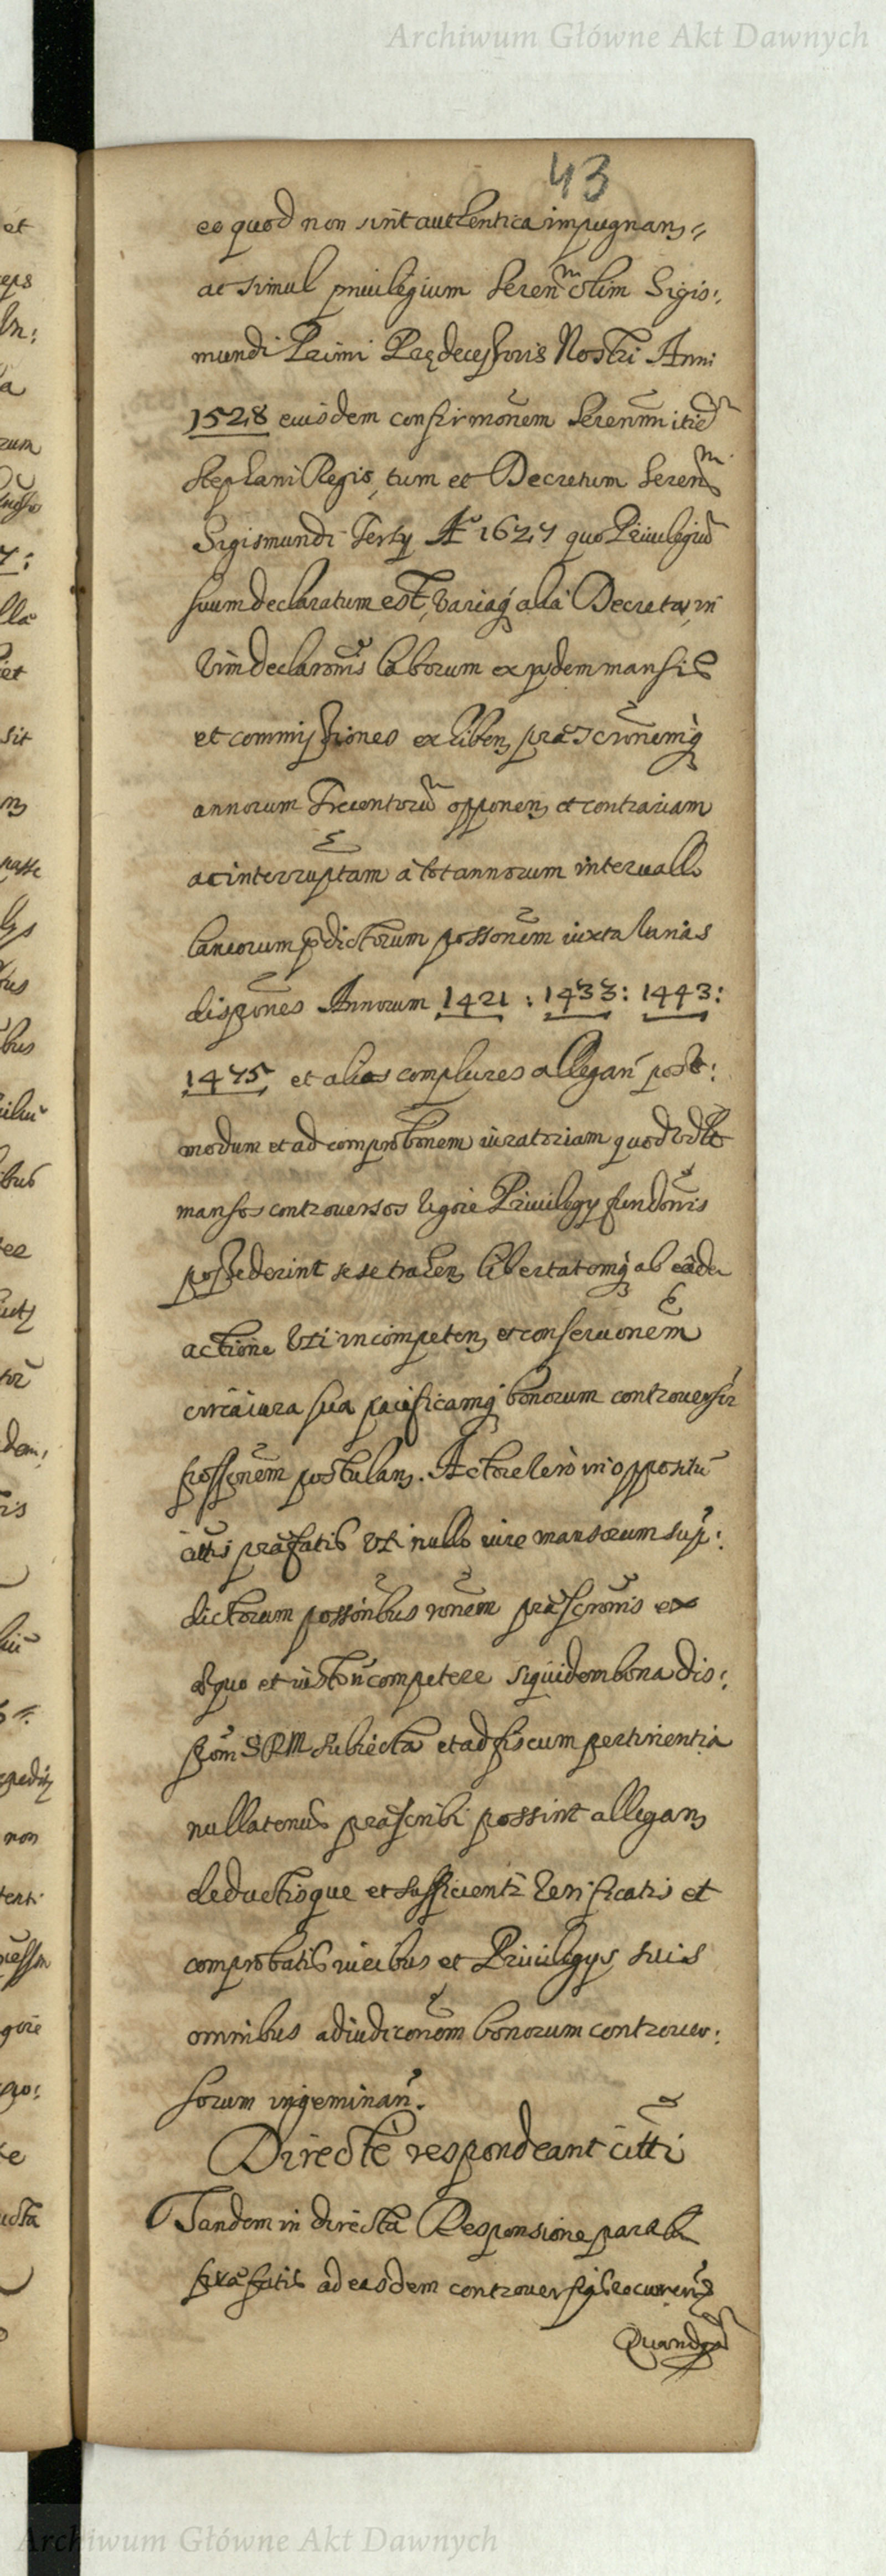 Archiwum Główne Akt Dawnych
43
eo quod non sint authentica impugnan,
ac simul priuilegium Seren^m olim Sigis:
mundi Primi Prędecessoris Nostri Anni
1528 eiusdem confirmõnem Serenmi itid^m
Stephani Regis, tum et Decretum Seren^m
Sigismundi Tertÿ A° 1627 quo Priuilegiũ
suum declaratum est, variaq alia Decreta, in
vim declarõnis laborum ex ijsdem mansis
et commissiones exhiben, præscrõnemq
annorum Trecentorũ opponen, et contrariam
ac interruptam à tot annorum interuallo
laneorum pdictorum possõnem iuxta varias
dispõnes Annorum 1421 : 1433 : 1443 :
1475 et alios complures allegan post:
modum et ad comprobõnem iuratoriam quod
mansos controuersos vigore Priuilegÿ fundõnis
possederint sese trahen, libertatemq ab eâdem
actione vti incompeten, et conseruõnem
circa iura sua pacificamq bonorum controuersor
possõnem postulan. Actore vero in oppositũ
citatis præfatis vti nullo iure mansorum sup:
dictorum possõribus rõnem præscrõnis ex
æquo et iusto ñ competere siquidem bona dis:
põni SRM subiecta et ad fiscum pertinentia
nullatenus præscribi possint allegan,
deductisque et sufficienti verificatis et
comprobatis iuribus et Priuilegÿs suis
omnibus adiudicõnem bonorum controuer:
sorum ingeminan.
Directè respondeant citti
Tandem in directa Responsione partibus
præfatis ad easdem controuersias recurren,
Archiwum Główne Akt Dawnych